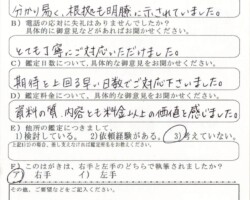 分かり易く、根拠も明瞭に示されていました。
B) 電話の応対に失礼はありませんでしたか?
具体的な御意見などがあればお聞かせください。
とても丁寧にご対応いただけました。
C) 鑑定日数について、具体的な御意見などがあればお聞かせください。
期待を上回る早い日数でご対応下さいました。
D) 鑑定料金について、具体的な御意見などがあればお聞かせください。
資料の質、内容とも料金以上の価値を感じました。
E) 他所の鑑定につきまして。
1)検討している。 2)依頼経験がある。 3)考えていない。
F) このはがきは、右手と左手のどちらで執筆されましたか?
右手 左手
その他、ご要望などをご記入ください。